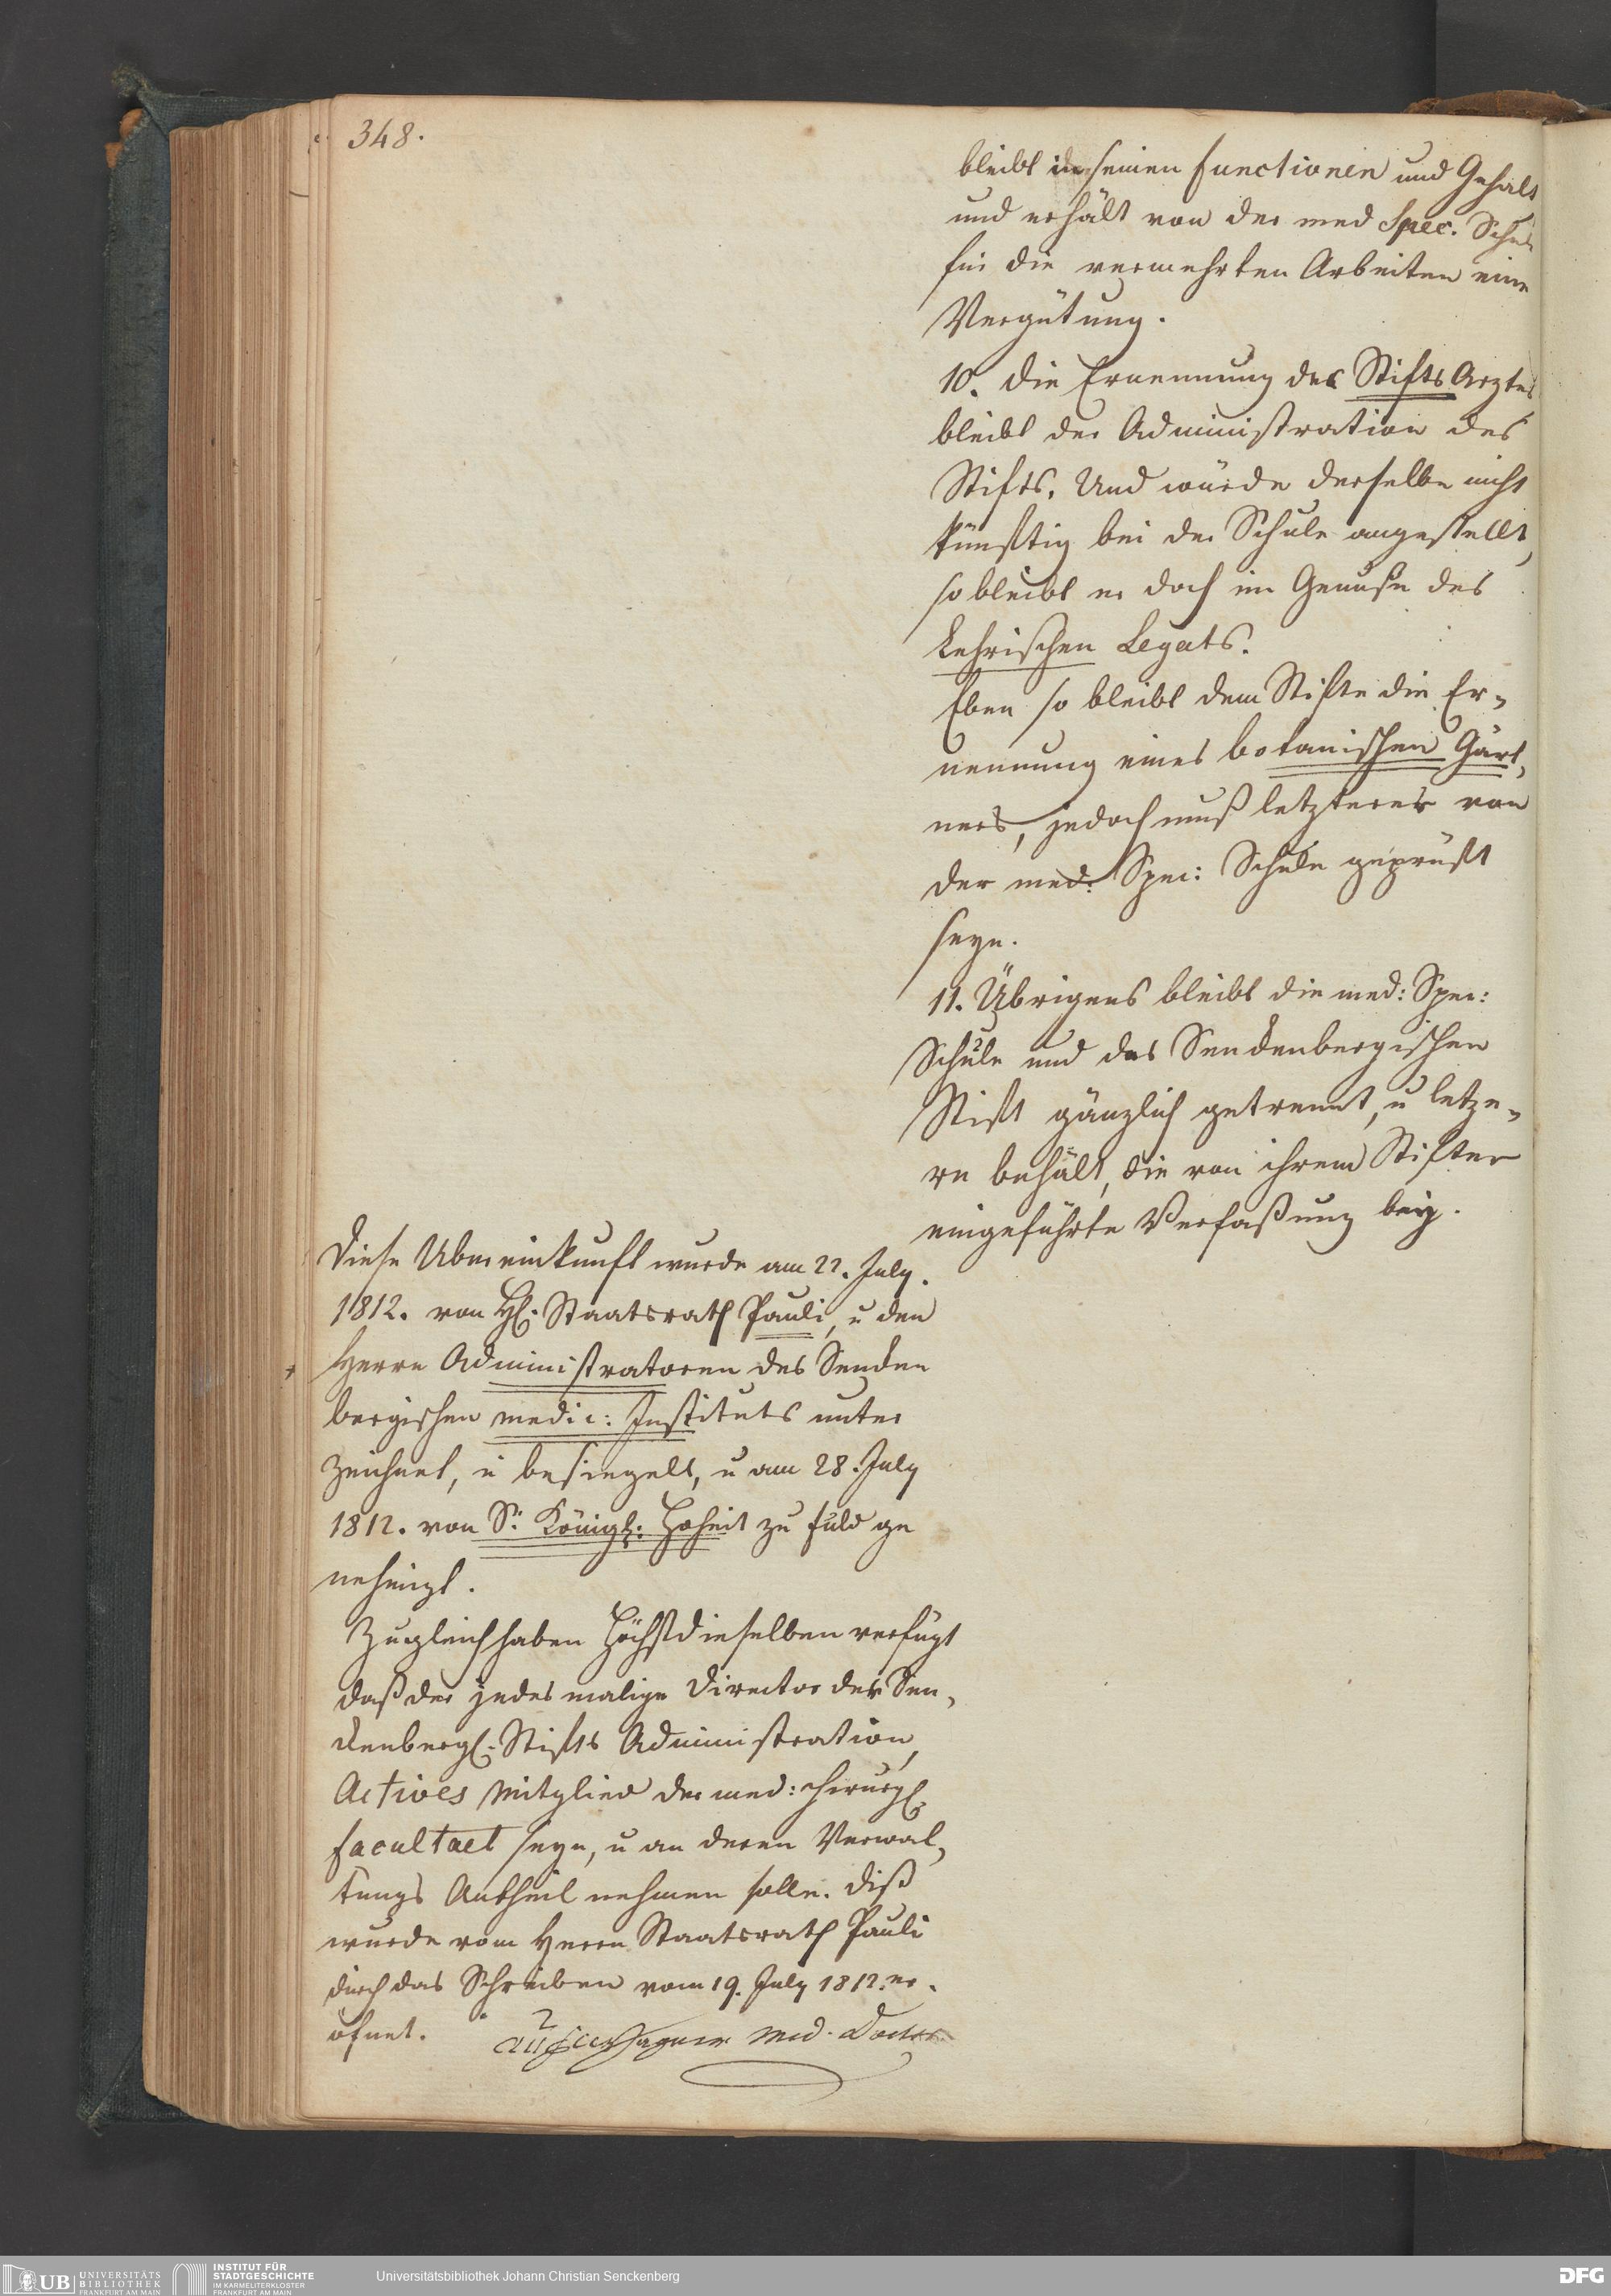 348.
bleibt in seinen functionen und Gehalt
und erhält von der med Spec. Schule
für die vermehrten Arbeiten eine
Vergütung.
10. die Ernennung des Stifts Arztes
bleibt der Administration des
Stifts. Und würde derselbe nicht
künftig bei der Schule angestellt,
so bleibt er doch im Genuße des
Lehrischen Legats.
Eben so bleibt dem Stifte die Er-
nennung eines botanischen Gärt-
ners, jedoch muß letzterer von
der med: Spec: Schule geprüft
seyn.
11. Übrigens bleibt die med: Spec:
Schule und das Senckenbergischen
Stift gänzlich getrennt, u letze-
re behält, die von ihrem Stifter
eingeführte Verfaßung bey.
Diese Ubereinkunft wurde am 22. July.
1812. von H. Staatsrath Pauli, u den
Herrn Administratoren des Sencken
bergischen medic: Instituts unter
zeichnet, u besiegelt, u am 28. July
1812. von Sr. Königl: Hoheit zu fuld ge
nehmigt.
Zugleich haben Höchstdieselben verfügt
daß der jedesmalige Director der Sen-
ckenbergl. Stifts Administration,
Actives Mitglied der med: chirurgl.
facultaet seyn, u an deren Verwal-
tungs Antheil nehmen solle. diß
wurde vom Herrn Staatsrath Pauli
durch das Schreiben vom 19. July 1812. er-
öfnet.
Med. Doctor
UB UNIVERSITÄTS
BIBLIOTHEK
FRANKFURT AM MAIN
INSTITUT FÜR
STADTGESCHICHTE
IM KARMELITERKLOSTER
FRANKFURT AM MAIN
Universitätsbibliothek Johann Christian Senckenberg
DFG